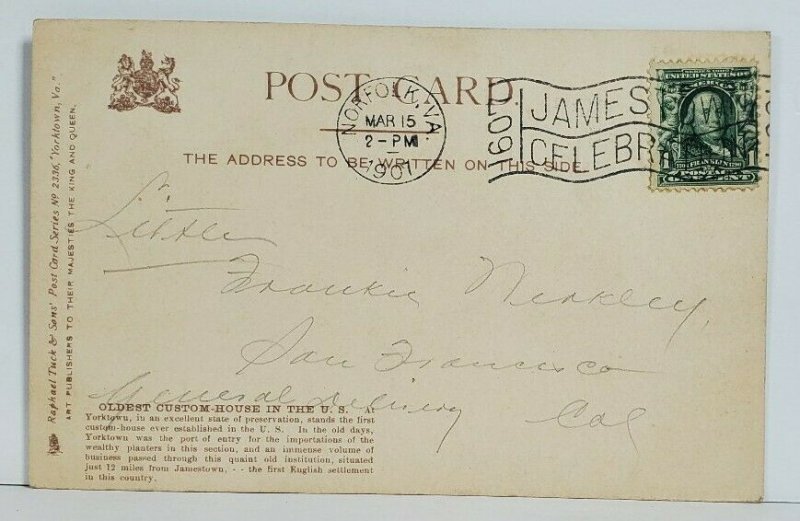 POST CARD.
NORFOLK, VA.
MAR 15
2-PM
1907
1607
JAMES
CELEBRA
UNITED STATES OF
AMERICA
FRANKLIN
POSTAGE
THE ADDRESS TO BE WRITTEN ON THIS SIDE.
Raphael Tuck & Sons' Post Card Series Nº 2336, "Yorktown, Va."
ART PUBLISHERS TO THEIR MAJESTIES THE KING AND QUEEN.
Little
Frankie Merkley,
San Francisco
General Delivery Cal
OLDEST CUSTOM-HOUSE IN THE U. S. At
Yorktown, in an excellent state of preservation, stands the first
custom-house ever established in the U. S. In the old days,
Yorktown was the port of entry for the importations of the
wealthy planters in this section, and an immense volume of
business passed through this quaint old institution, situated
just 12 miles from Jamestown, - - the first English settlement
in this country.